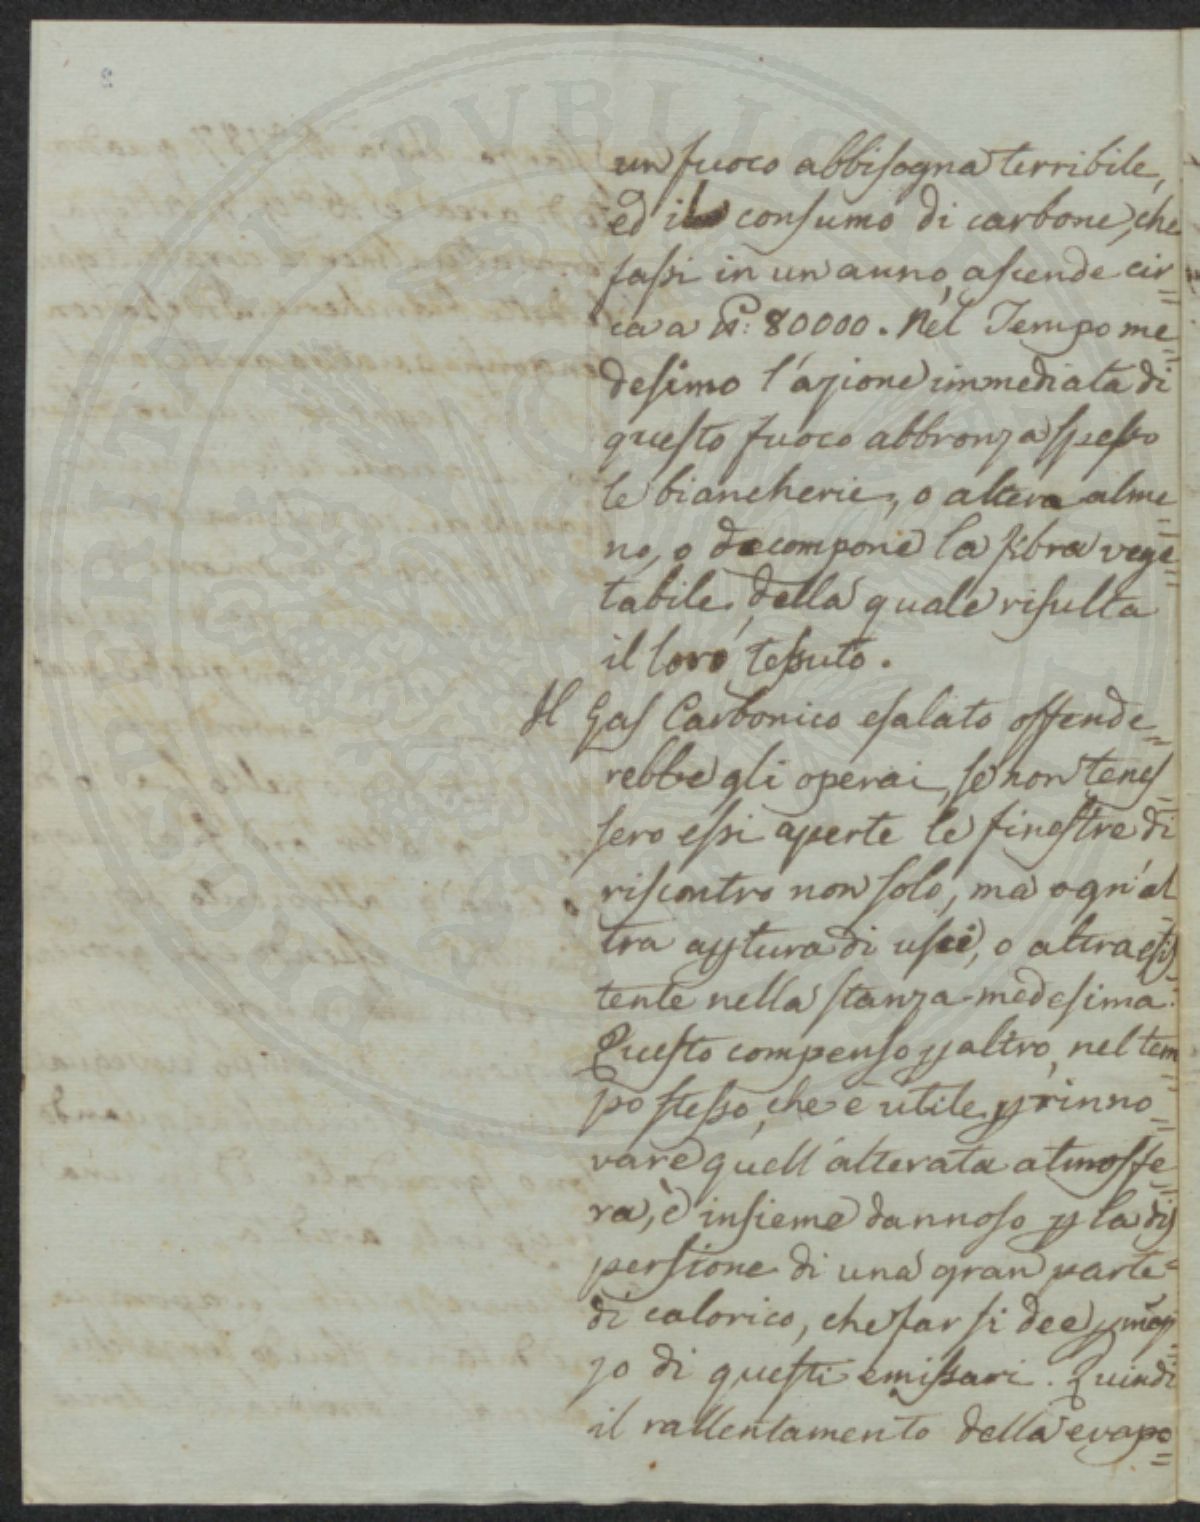 un fuoco abbisogna terribile,
ed il consumo di carbone, che
fassi in un anno, ascende cir=
ca a 80000. Nel Tempo me=
desimo l'azione immediata di
questo fuoco abbronza spesso
le biancherie, o altera alme=
no, o decompone la fibra vege=
tabile, della quale risulta
il loro tessuto.
Il Gas Carbonico esalato offende=
rebbe gli operai, se non tenes=
sero essi aperte le finestre di
riscontro non solo, ma ogn'al=
tra apertura di usci, o altra esis=
tente nella stanza medesima.
Questo compenso per altro, nel tem=
po stesso, che è utile per rinno=
vare quell'alterata atmosfe=
ra, è insieme dannoso per la dis=
persione di una gran parte
di calorico, che far si dee per mez=
zo di questi emissari. Quindi
il rallentamento della evapo=